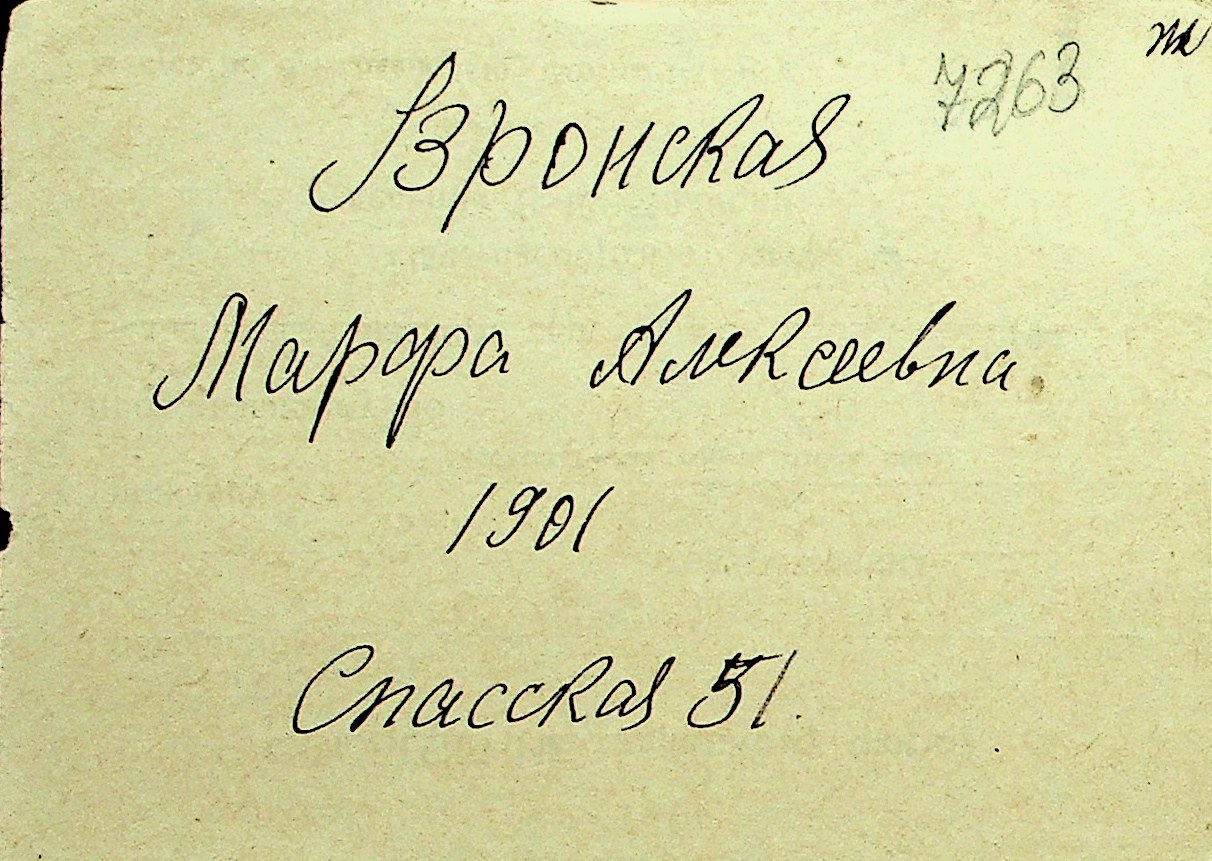 7263
Вронская
Марфа Алексеевна
1901
Спасская 51.